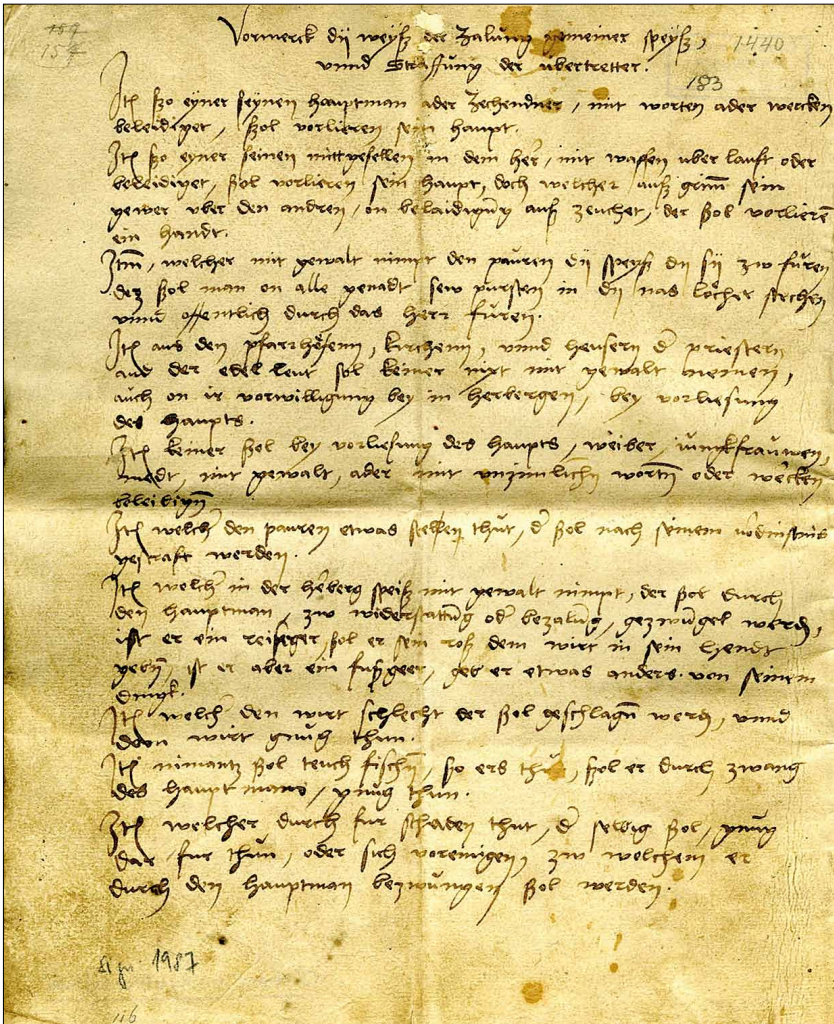 189
154
Vormerck dij weyß der Zalung gemeiner speyß, 1440
vnnd Straffung der übertretter.
183
Itē ßo eyner seynen hauptman ader Zechendner, mit worten ader wercken
beleidiget, ßol vorlieren sein haupt.
Itē ßo eyner seinen mittgesellen in dem her, mit waffen vber lauft oder
beleidiget, ßol vorlieren sein haupt, doch welcher auß grim̄ sein
gewer vber den andren, on belaidigūg auß zeuchet, der ßol vorlierē
ein handt.
Itm̄, welcher mit gewalt nimpt den pauren dij speyß dij sij zw furen
dez ßol man on alle genadt sew pursten in dij nas löcher stechen
vnnd offentlich durch das herr füren.
Itē aus den pfarrhöfenn, kirchenn, vnnd heusern d' priestern
aud der edel leut sol keiner nixt mit gewalt nemen,
auch on ir vorwilligung bey in herbergen, bey vorliesung
des haupts.
Itē keiner ßol bey vorliesung des haupts, weiber, iunckfrauwen,
medt, mit gewalt, ader mit vnzimlichn wortn̄ oder wercken
beleidign̄
Itē welch' den pauren etwas stellen thut, d' ßol nach seinem vordinstnis
gestraft werden.
Itē welch' in der herberg speiß mit gewalt nimpt, der ßol durch
den hauptman, zw widerstattūg od' bezalūg, gezwūgel werdn,
ist er ein reisiger, ßol er sein roß dem wirt in sein hendt
gebn̄, ist er aber ein fußgeer, geb er etwas anders von seinem
dingk.
Itē welch' den wirt schlecht der ßol geschlagn̄ werdn, vnnd
dem wirt gnug thun.
Itē nimantz ßol teuch fischn̄, ßo ers thut, ßol er durch zwang
des hauptmans, gnug thun.
Itē welcher durch fur schaden thut, d' selbig ßol, gnug
dar fur thun, oder sich voreinigen, zw welchem er
durch den hauptman bezwungen ßol werden.
1987
116